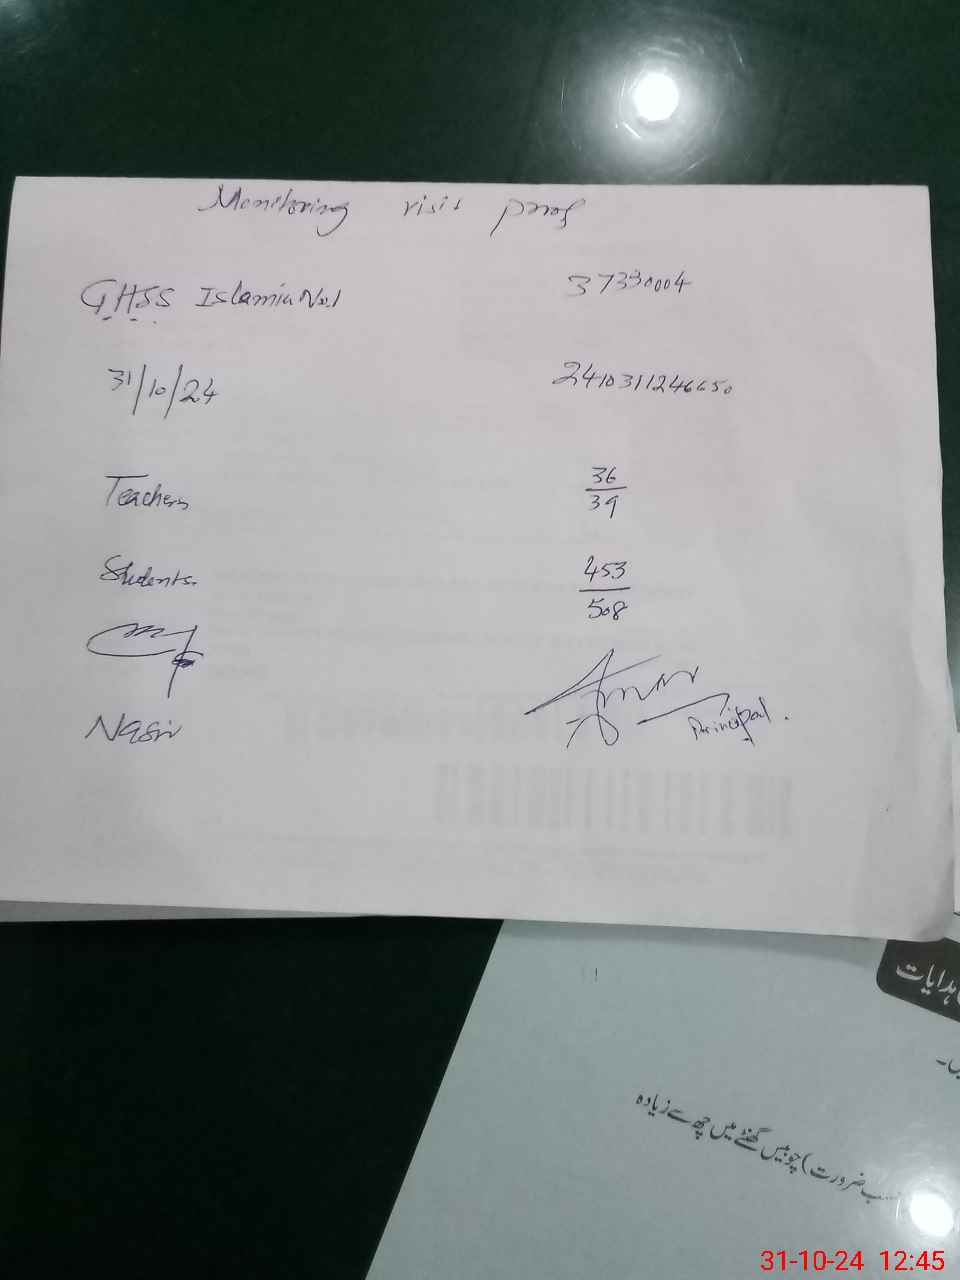 Monitoring visit proof
GHSS Islamia No.1 37330004
31/10/24 2410311246650
Teachers 36/39
Students. 453/508
Nasir
Principal.
ہدایات
سب ضرورت) چوبیس گھنٹے میں چھ سے زیادہ
31-10-24 12:45